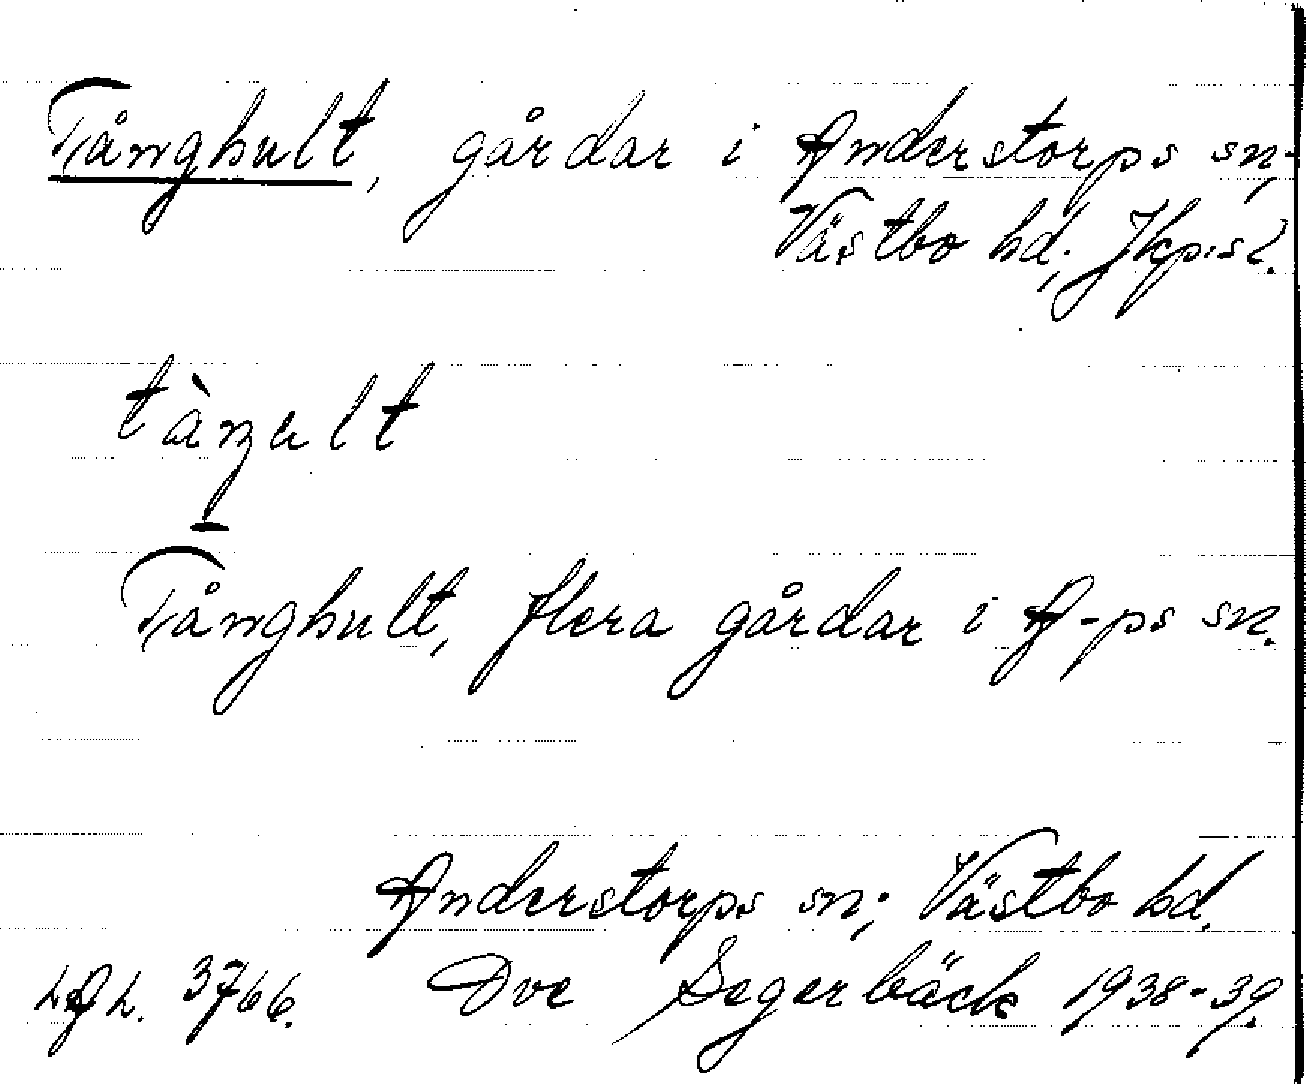 Tånghult, gårdar i Anderstorps sn,
Västbo hd; Jkp:s l.
Tånghult, flera gårdar i A-ps sn.
Anderstorps sn; Västbo hd.
LAL. 3766. Ove Segerbäck 1938-39.